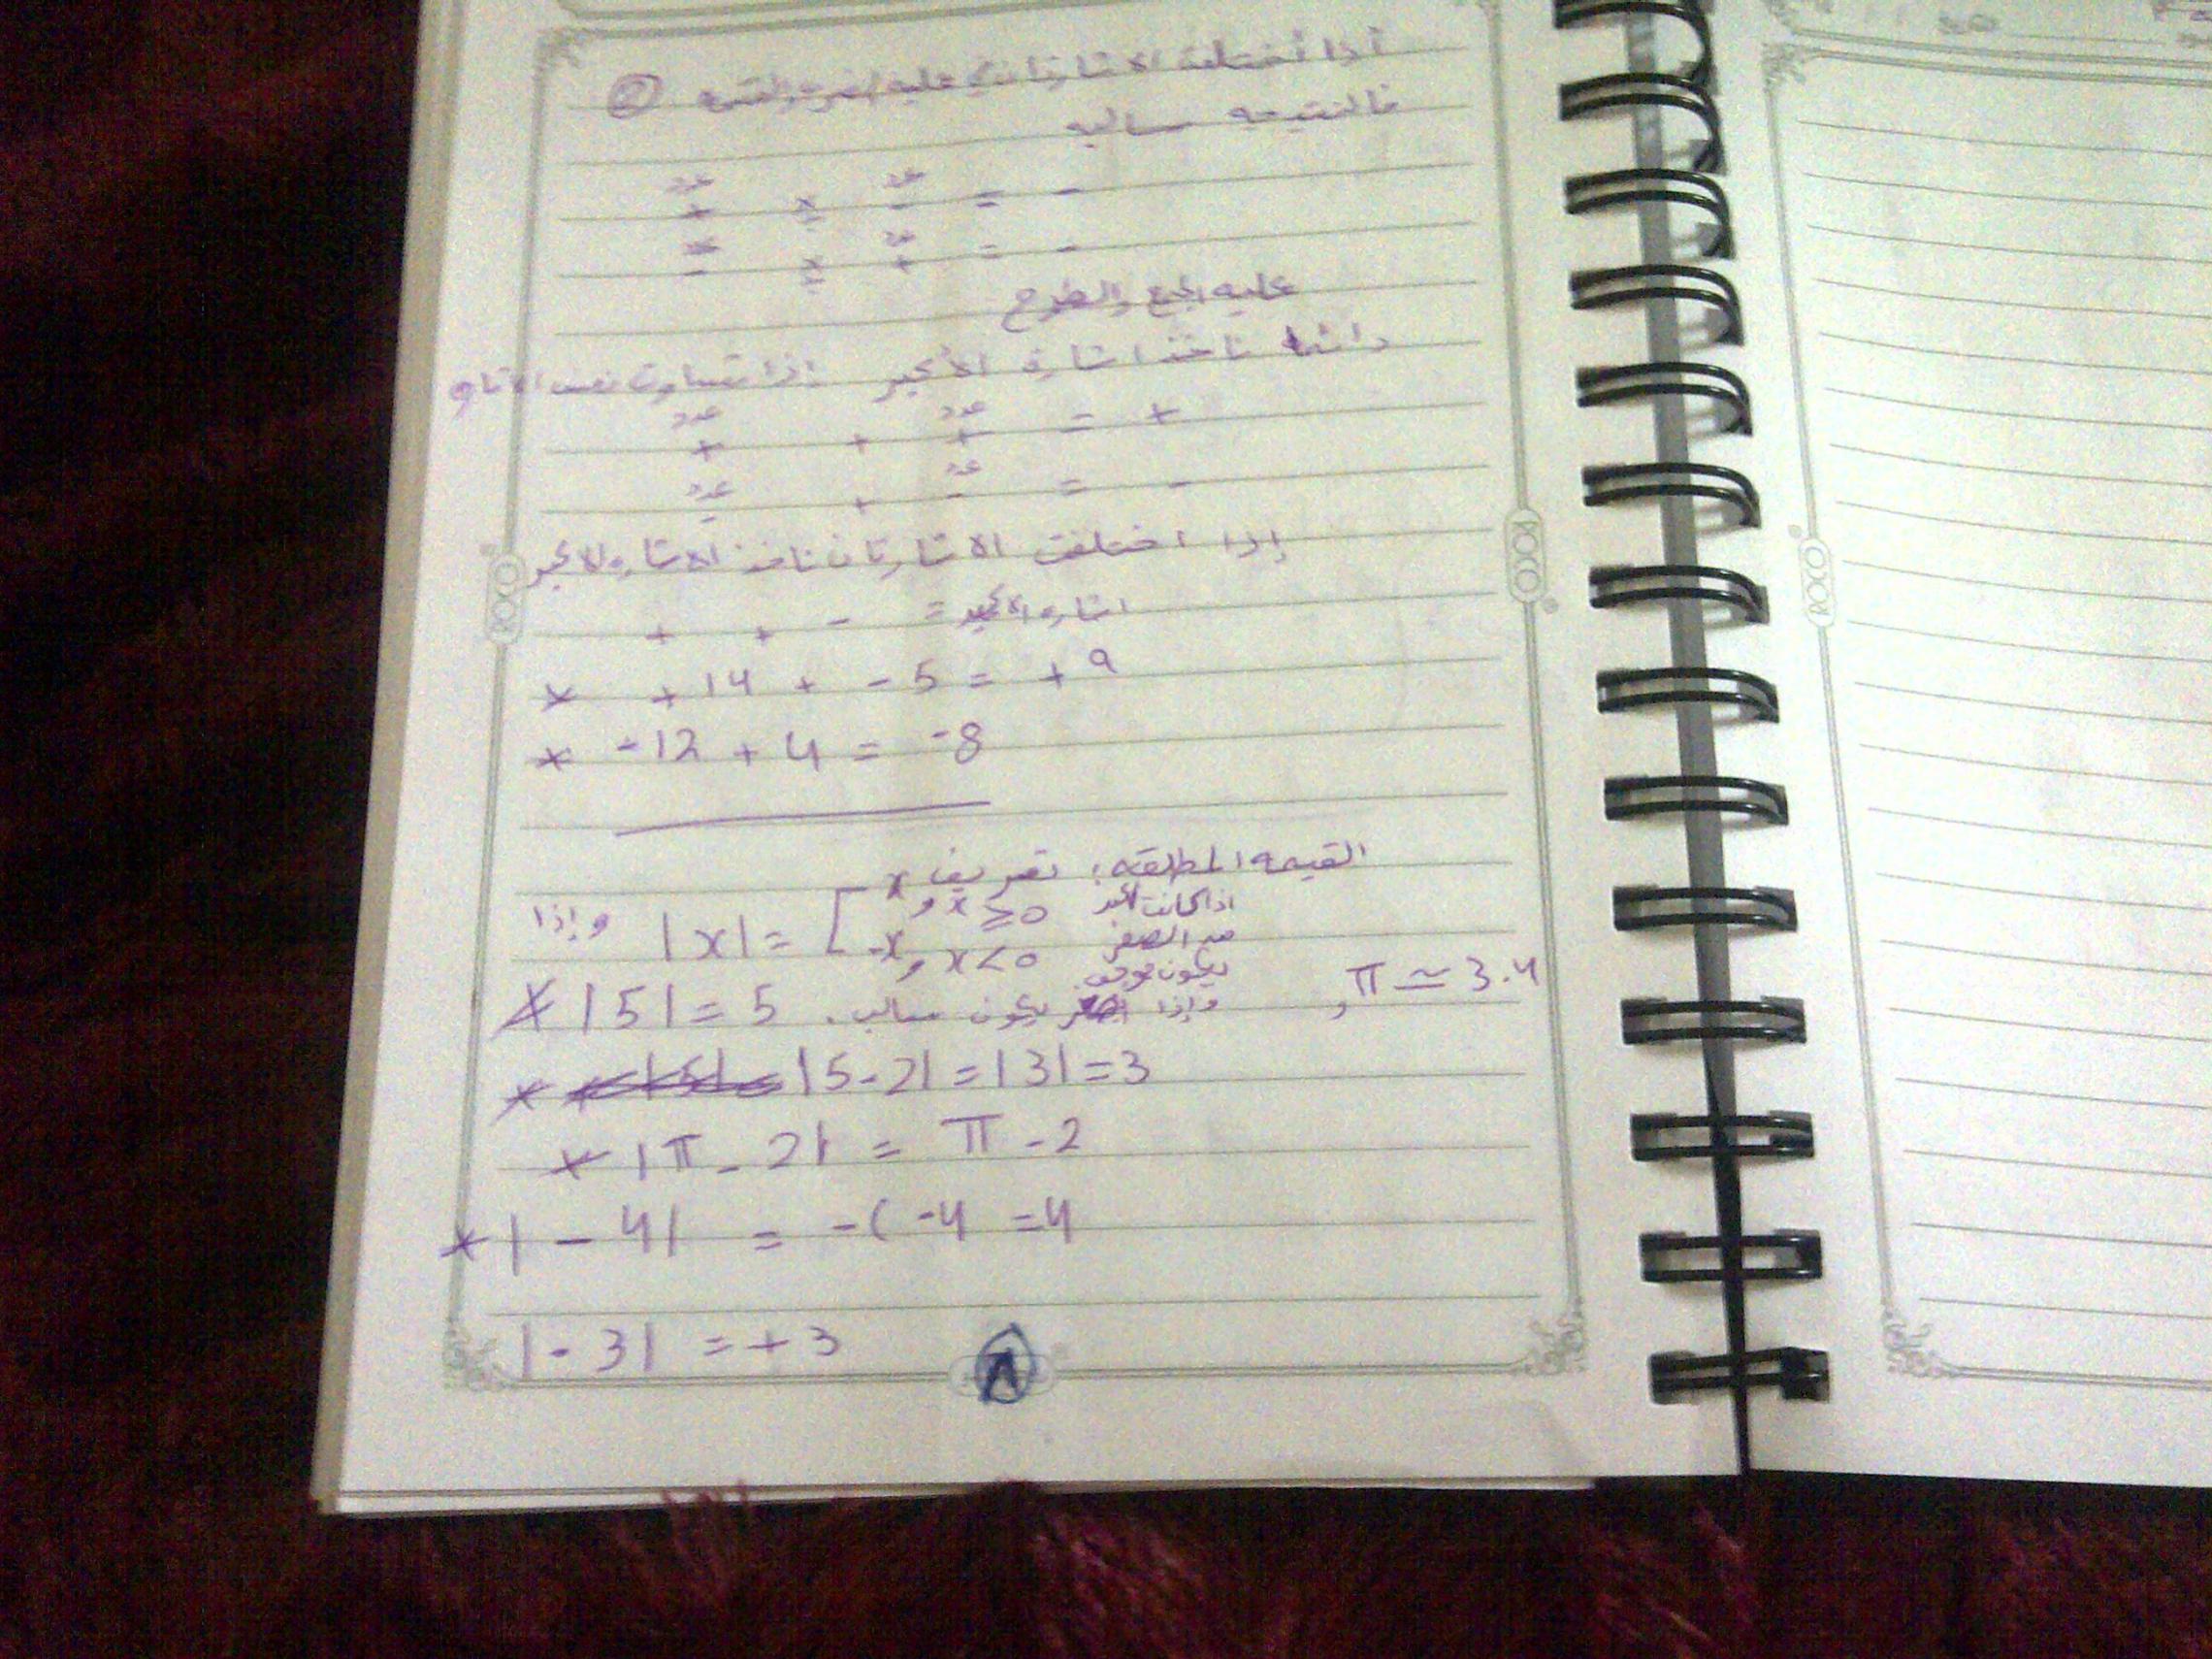 ② أذا أختلفت الاشارتان في عمليه الضرب والقسمه
فالنتيجه سالبه
عدد عدد
+ × - = -
عدد عدد
- × + = -
عمليه الجمع والطرح
دائما ناخذ اشارة الأكبر إذا تساوت نفس الاشاره
عدد عدد
+ + + = +
عدد عدد
- + - = -
إذا اختلفت الاشارتان ناخذ الاشاره الاكبر
+ + - = اشاره الاكبر
* +14 + -5 = +9
* -12 + 4 = -8
القيمه المطلقه: تعريف
|x| = [ x , x ≥ 0
-x , x < 0
اذا كانت اكبر
من الصفر
يكون موجب
وإذا
وإذا يكون سالب.
* |5| = 5
, π ≃ 3.4
* |5-2| = |3| = 3
* |π - 2| = π - 2
* | - 4| = -( -4 = 4
|- 3| = + 3
ROCO
ROCO
ROCO